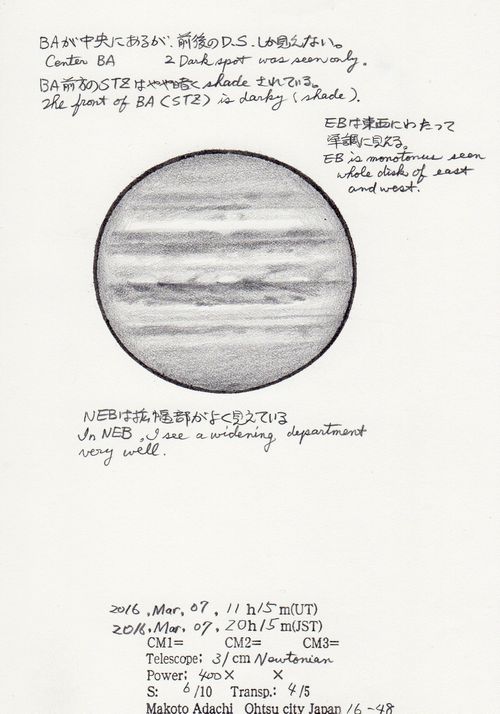 BAが中央にあるが、前後のD.S.しか見えない。
Center BA 2 Dark spot was seen only.
BA前方のSTZはやや暗く shade されている。
The front of BA (STZ) is darky (shade).
EBは東西にわたって
単調に見える。
EB is monotonus seen
whole disk of east
and west.
NEBは拡幅部がよく見えている
In NEB, I see a widening department
very well.
2016 , Mar, 07 , 11 h 15 m(UT)
2016, Mar, 07 , 20h 15 m(JST)
CM1= CM2= CM3=
Telescope; 31 cm Newtonian
Power; 400 × ×
S: 6 /10 Transp.; 4 /5
Makoto Adachi Ohtsu city Japan 16-48